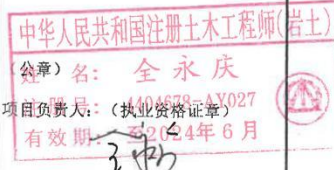 中华人民共和国注册土木工程师(岩土)
(公章)
姓 名: 全永庆
注册号: 4404678-AY027
项目负责人: (执业资格证章)
有效期: 至2024年6月